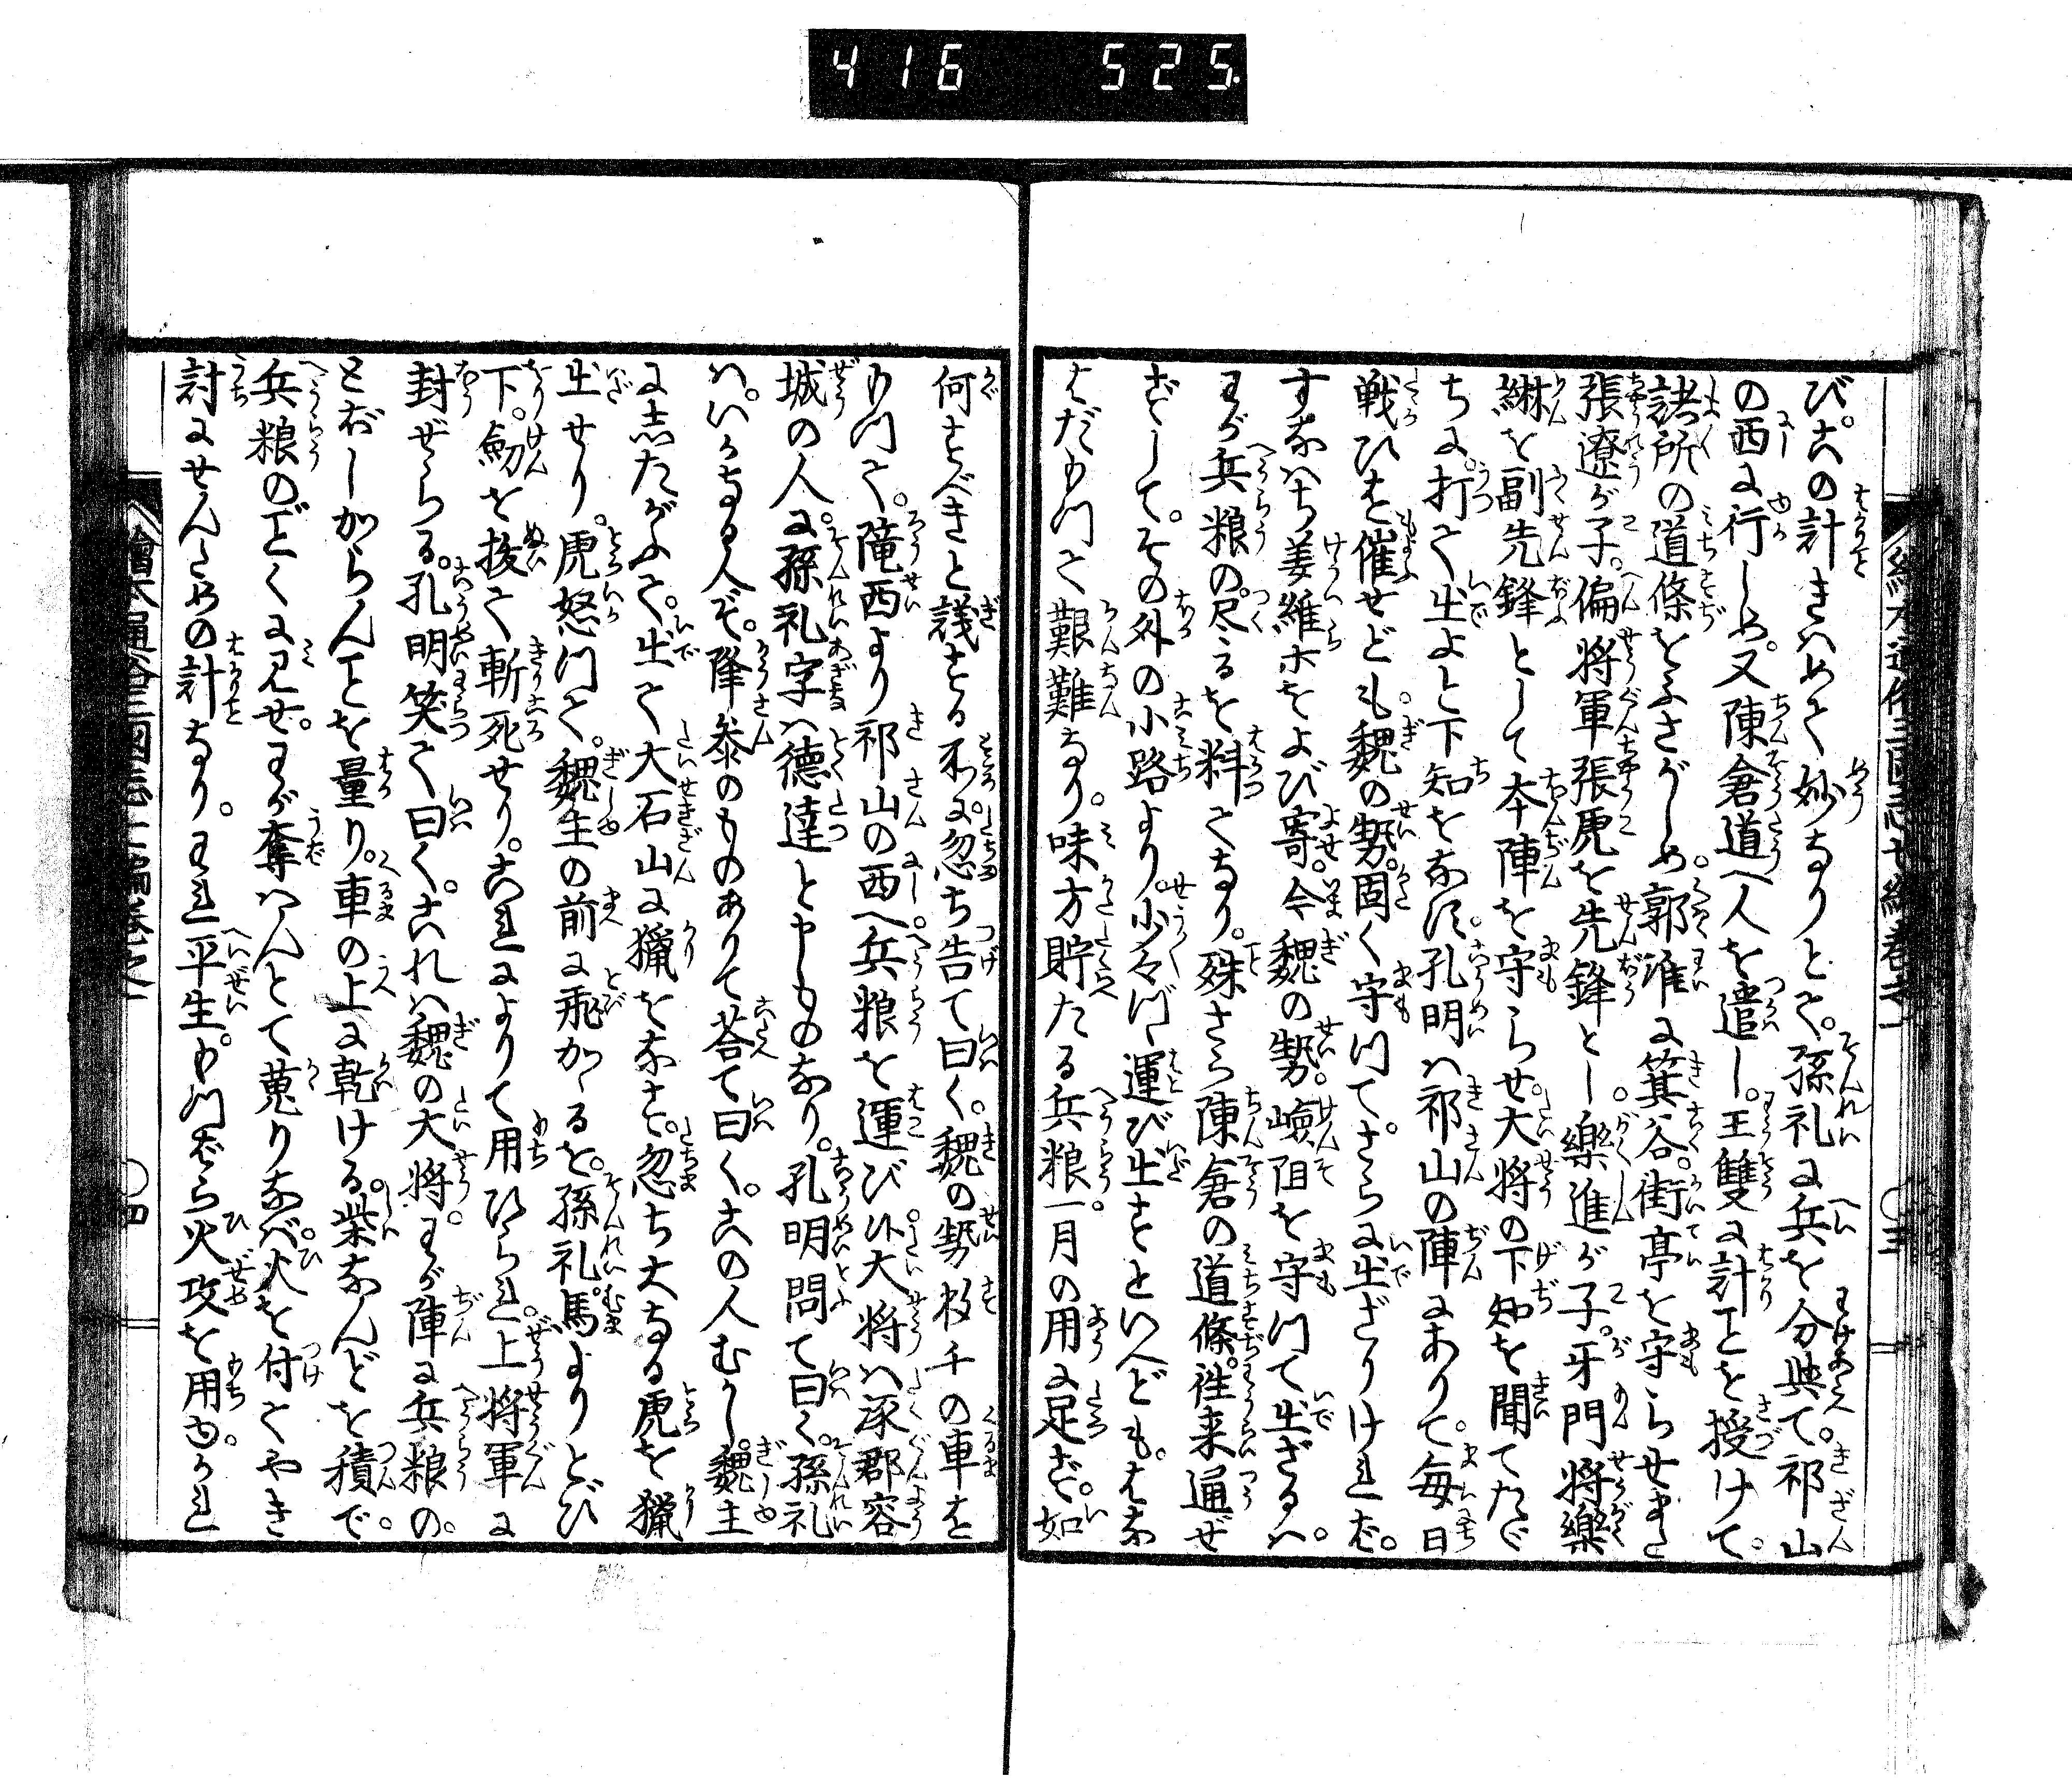 416 525.
び。この計きはめて妙なりとて。孫礼に兵を分與て。祁山
の西に行しめ。又陳倉道へ人を遣し。王雙に計ことを授けて。
諸所の道條をふさがしめ。郭淮に箕谷。街亭を守らせまた
張遼が子。偏将軍張虎を先鋒とし。樂進が子。牙門将樂
綝を副先鋒として本陣を守らせ。大将の下知を聞てたゞ
ちに。打て出よと下知をなす。孔明ハ祁山の陣にありて。毎日
戦ひを催せども。魏の勢。固く守りて。さらに出ざりければ。
すなハち姜維ホをよび寄。今魏の勢。嶮阻を守りて出ざるハ。
わが兵粮の。尽るを料てなり。殊さら陳倉の道條。往来通ぜ
ずして。その外の小路より。少々づゝ運び出すといへども。はな
はだもつて艱難なり。味方貯たる兵粮。一月の用に足ず。如
何すべきと議する所に。忽ち告て曰く。魏の勢数千の車を
もつて。隴西より祁山の西へ兵粮を運び候。大将ハ涿郡容
城の人に。孫礼字ハ徳達と申ものなり。孔明問て曰く。孫礼
ハ。いかなる人ぞ。降参のものありて荅て曰く。この人むかし。魏主
に志たがふて。出て大石山に獵をなす。忽ち大なる虎を獵
出せり。虎怒つて。魏主の前に飛かゝるを。孫礼。馬よりとび
下。剱を抜て斬死せり。これによりて用ひられ。上将軍に
封ぜらる。孔明笑て曰く。これハ魏の大将。わが陣に兵粮の。
とぼしからんことを量り。車の上に乾ける。柴なんどを積で。
兵粮のごとくに見せ。わが奪ハんとて蒐りなバ。火を付てやき
討にせんための計なり。われ平生。もつぱら火攻を用ゆ。かれ